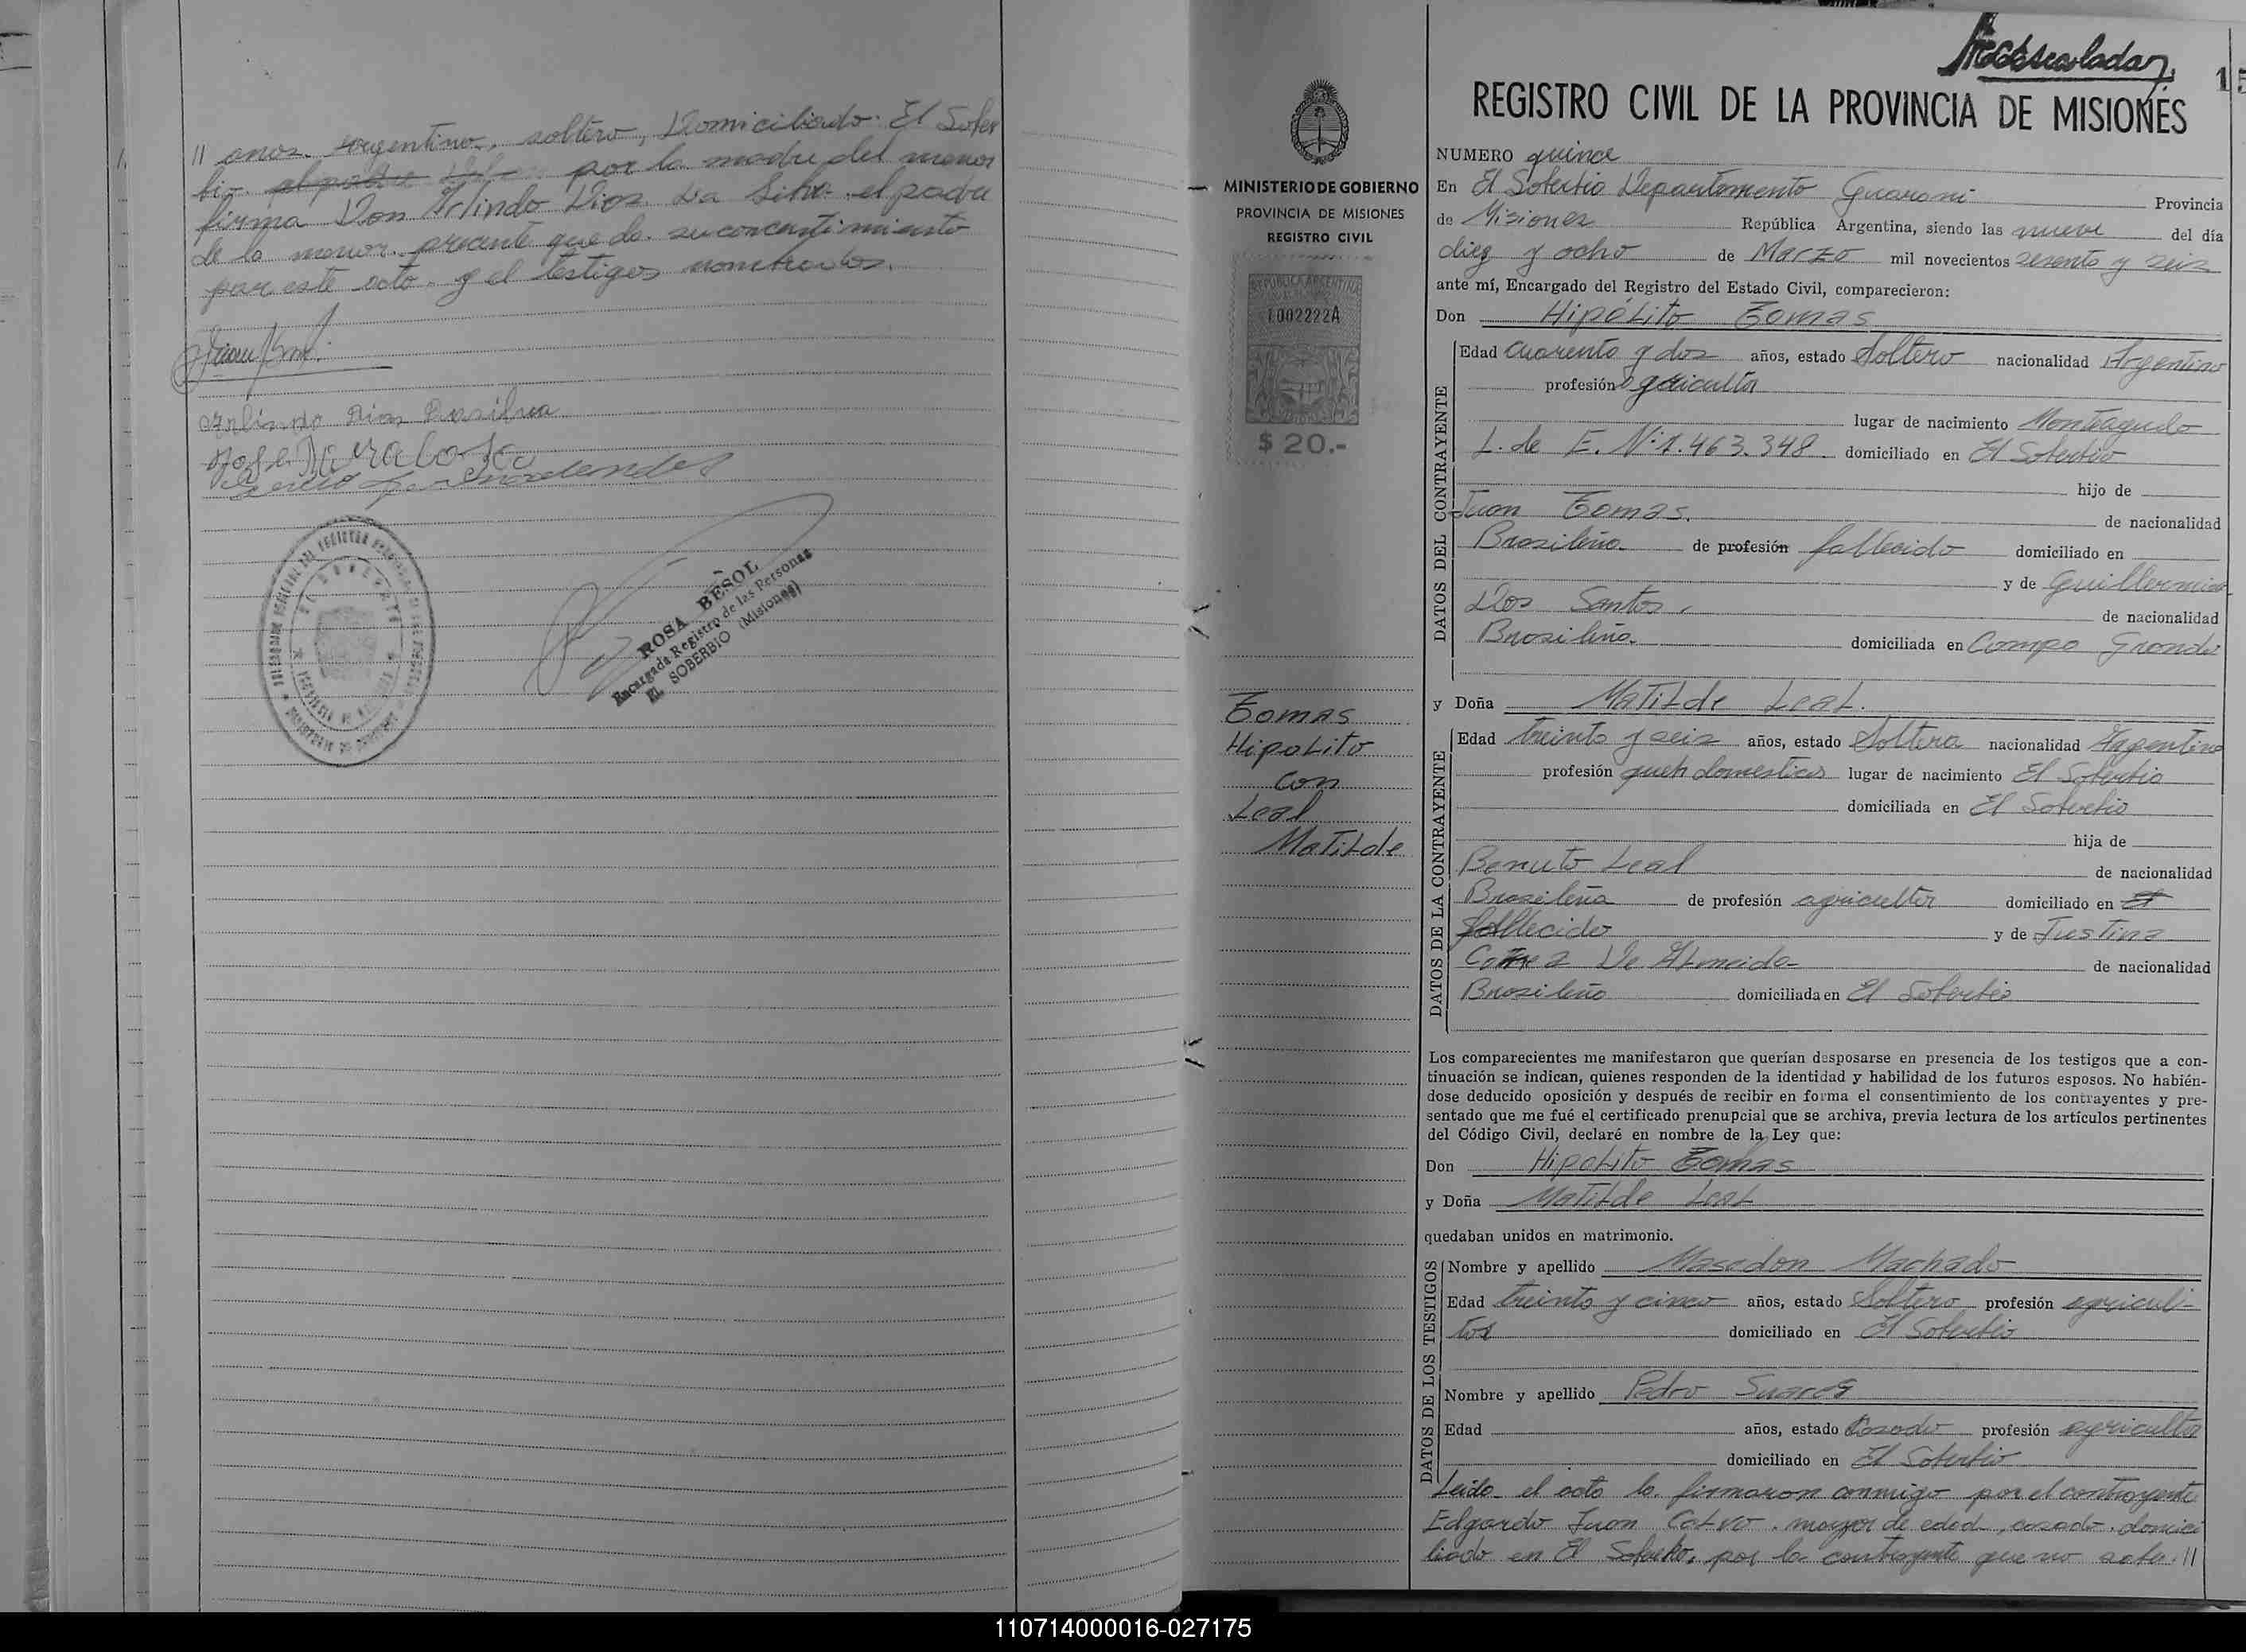 11 anos. argentino, soltero, Domiciliado. El Sober
bio. por la madre del menor
firma Don Arlindo Dias Da Silva el padre
de la menor. presente que da. su concentimiento
par este acto. y el testigos nombrados.
Arlindo Dias Dasilva
ROSA BESOL
Encargada Registro de las Personas
EL SOBERBIO (Misiones)
MINISTERIO DE GOBIERNO
PROVINCIA DE MISIONES
REGISTRO CIVIL
REPUBLICA ARGENTINA
1002222A
$ 20.-
Tomas
Hipolito
con
Leal
Matilde
15
REGISTRO CIVIL DE LA PROVINCIA DE MISIONES
NUMERO quince
En El Soberbio Departamento Guarani Provincia
de Misiones República Argentina, siendo las nueve del día
diez y ocho de Marzo mil novecientos sesenta y seis
ante mí, Encargado del Registro del Estado Civil, comparecieron:
Don Hipólito Tomas
DATOS DEL CONTRAYENTE
Edad cuarenta y dos años, estado Soltero nacionalidad Argentino
profesión agricultor
lugar de nacimiento Monteagudo
L. de E. Nº 1.463.348 domiciliado en El Soberbio
hijo de
Juan Tomas. de nacionalidad
Brasileño. de profesión fallecido domiciliado en
y de Guillermina
Dos Santos, de nacionalidad
Brasileña. domiciliada en Campo Grande
y Doña Matilde Leal.
DATOS DE LA CONTRAYENTE
Edad treinta y seis años, estado Soltera nacionalidad Argentina
profesión queh domesticos lugar de nacimiento El Soberbio
domiciliada en El Soberbio
hija de
Benuto Leal de nacionalidad
Brasileña de profesión agricultor domiciliado en El
fallecido y de Justina
De Almeida de nacionalidad
Brasileño domiciliada en El Soberbio
Los comparecientes me manifestaron que querían desposarse en presencia de los testigos que a con-
tinuación se indican, quienes responden de la identidad y habilidad de los futuros esposos. No habién-
dose deducido oposición y después de recibir en forma el consentimiento de los contrayentes y pre-
sentado que me fué el certificado prenupcial que se archiva, previa lectura de los artículos pertinentes
del Código Civil, declaré en nombre de la Ley que:
Don Hipolito Tomas
y Doña Matilde Leal
quedaban unidos en matrimonio.
DATOS DE LOS TESTIGOS
Nombre y apellido Masedon Machado
Edad treinta y cinco años, estado Soltero profesión agricul-
tor domiciliado en El Soberbio
Nombre y apellido Pedro Suares
Edad años, estado Casado profesión agricultor
domiciliado en El Soberbio
Leido el acto lo firmaron conmigo por el contrayente
Edgardo Juan Calvo, mayor de edad, casado, domici
liado en El Soberbio, por la contrayente que no sabe 11
110714000016-027175